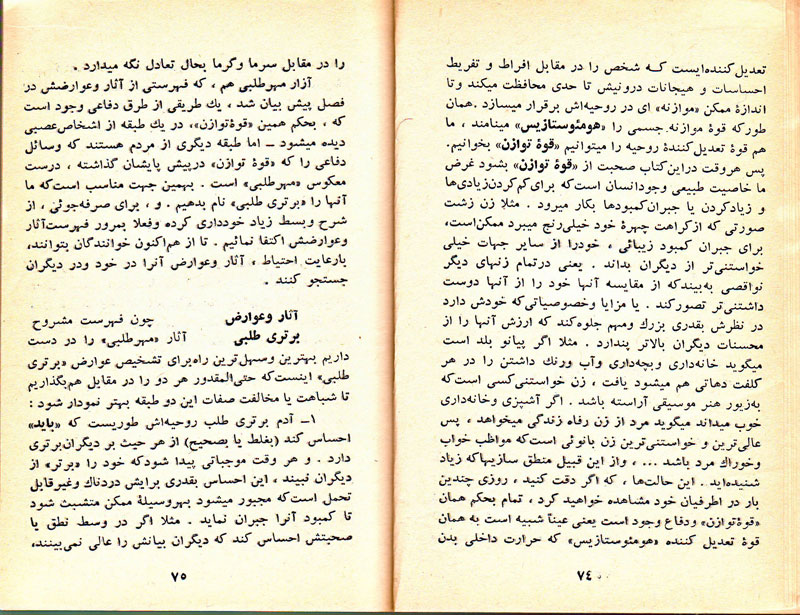 تعدیل‌کننده‌ایست کـه شخص را در مقابل افراط و تفریط
احساسات و هیجانات درونیش تا حدی محافظت میکند وتا
اندازهٔ ممکن «موازنه» ای در روحیه‌اش برقرار میسازد . همان
طورکه قوهٔ موازنه جسمی را «هومئوستازیس» مینامند ، ما
هم قوهٔ تعدیل‌کنندهٔ روحیه را میتوانیم «قوهٔ توازن» بخوانیم.
پس هروقت دراین‌کتاب صحبت از «قوهٔ توازن» بشود غرض
ما خاصیت طبیعی وجودانسان است‌که برای‌کم‌کردن‌زیادی‌ها
و زیادکردن یا جبران‌کمبودها بکار میرود . مثلا زن زشت
صورتی که ازکراهت چهرهٔ خود خیلی‌رنج میبرد ممکن‌است،
برای جبران کمبود زیبائی ، خودرا از سایر جهات خیلی
خواستنی‌تر از دیگران بداند . یعنی درتمام زنهای دیگر
نواقصی به‌بیندکه از مقایسه آنها خود را از آنها دوست
داشتنی‌تر تصورکند . یا مزایا وخصوصیاتی‌که خودش دارد
در نظرش بقدری بزرك ومهم جلوه‌کند که ارزش آنها را از
محسنات دیگران بالاتر پندارد . مثلا اگر پیانو بلد است
میگوید خانه‌داری وبچه‌داری وآب ورنك داشتن را در هر
کلفت دهاتی هم میشود یافت ، زن خواستنی‌کسی است‌که
به‌زیور هنر موسیقی آراسته باشد . اگر آشپزی وخانه‌داری
خوب میداند میگوید مرد از زن رفاه زندگی میخواهد ، پس
عالی‌ترین و خواستنی‌ترین زن بانوئی است‌که مواظب خواب
وخوراك مرد باشد ... ، واز این قبیل منطق سازیهاکه زیاد
شنیده‌اید . این حالت‌ها ، که اگر دقت کنید ، روزی چندین
بار در اطرفیان خود مشاهده خواهید کرد ، تمام بحکم همان
«قوهٔ‌توازن» ودفاع وجود است یعنی عیناً شبیه است به همان
قوهٔ تعدیل کننده «هومئوستازیس» که حرارت داخلی بدن
۷۴
را در مقابل سرما وگرما بحال تعادل نگه میدارد .
آزار مهرطلبی هم ، که فهرستی از آثار وعوارضش در
فصل پیش بیان شد ، یك طریقی از طرق دفاعی وجود است
که ، بحکم همین «قوهٔ‌توازن»، در یك طبقه از اشخاص‌عصبی
دیده میشود ــ اما طبقه دیگری از مردم هستند که وسائل
دفاعی را که «قوهٔ توازن» درپیش پایشان گذاشته ، درست
معکوس «مهرطلبی» است . بهمین جهت مناسب است‌که ما
آنها را «برتری طلبی» نام بدهیم . و ، برای صرفه‌جوئی ، از
شرح وبسط زیاد خودداری کرده وفعلا بمرور فهرست‌آثار
وعوارضش اکتفا نمائیم . تا از هم‌اکنون خوانندگان بتوانند،
بارعایت احتیاط ، آثار وعوارض آنرا در خود ودر دیگران
جستجو کنند .
آثار وعوارض
برتری طلبی
چون فهرست مشروح
آثار «مهرطلبی» را در دست
داریم بهترین وسهل‌ترین راه‌برای تشخیص عوارض «برتری
طلبی» اینست‌که حتی‌المقدور هر دو را در مقابل هم‌بگذاریم
تا شباهت یا مخالفت صفات این دو طبقه بهتر نمودار شود :
۱ــ آدم برتری طلب روحیه‌اش طوریست که «باید»
احساس کند (بغلط یا بصحیح) از هر حیث بر دیگران‌برتری
دارد . و هر وقت موجباتی پیدا شودکه خود را «برتر» از
دیگران نبیند ، این احساس بقدری برایش دردناك وغیرقابل
تحمل است‌که مجبور میشود بهروسیلهٔ ممکن متشبث شود
تا کمبود آنرا جبران نماید . مثلا اگر در وسط نطق یا
صحبتش احساس کند که دیگران بیانش را عالی نمی‌بینند،
۷۵